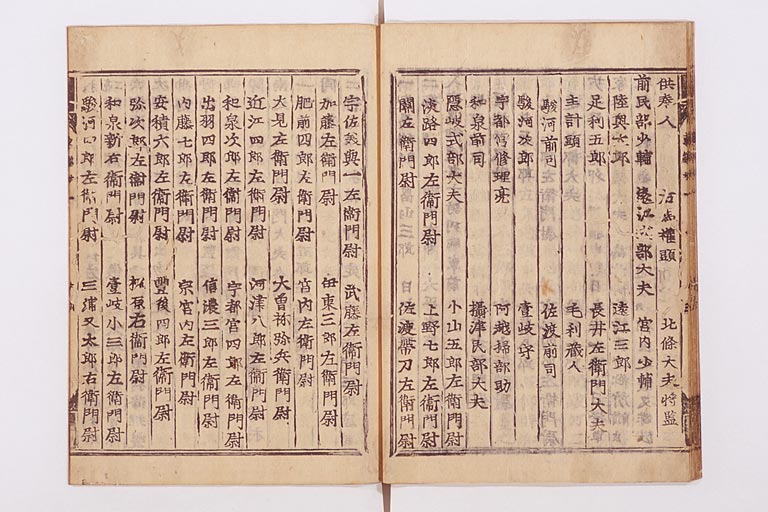 供奉人 右馬權頭 北條大夫將監
前民部少輔 遠江式部大夫 宮内少輔
陸奥六郎 遠江三郎
足利五郎 長井左衛門大夫
主計頭 毛利藏人
駿河前司 佐渡前司
駿河次郎 壹岐守
宇都宮修理亮 阿
和泉前司 攝津民部大夫
隱岐式部大夫 小山五郎左衛門尉
淡路四郎左衛門尉 上野七郎左衛門尉
左衛門尉 佐渡帶刀左衛門尉
宇佐美與一左衛門尉 武藤左衛門尉
加藤左衛門尉 伊東三郎左衛門尉
肥前四郎左衛門尉 宮内左衛門尉
大見左衛門尉 大曽祢弥兵衛門尉
近江四郎左衛門尉 河津八郎左衛門尉
和泉次郎左衛門尉 宇都宮四郎左衛門尉
出羽四郎左衛門尉 信濃三郎左衛門尉
内藤七郎左衛門尉 宗宮内左衛門尉
安積六郎左衛門尉 豐後四郎左衛門尉
弥次郎左衛門尉 右衛門尉
和泉新右衛門尉 壹岐小三郎左衛門尉
駿河四郎左衛門尉 三浦又太郎右衛門尉